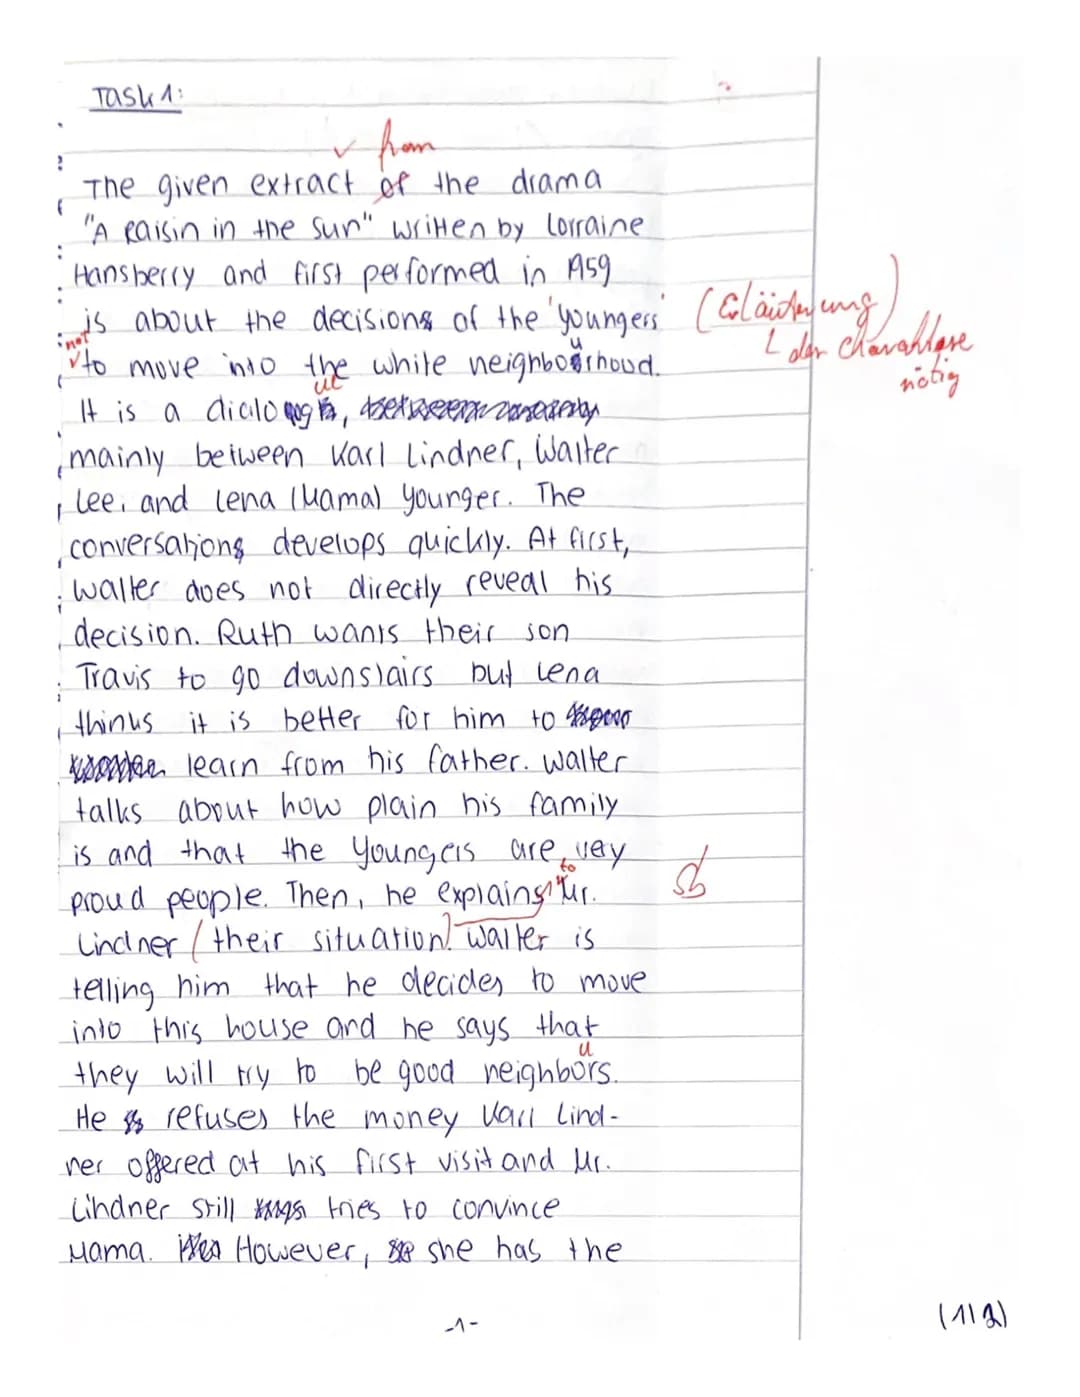 Task 1:
✓ from
The given extract of the drama
"A Raisin in the Sun" written by Lorraine
Hansberry and first performed in 1959
is about the decisions of the 'Youngers'
(Erläuterung)
not
to move into the white neighborhood.
u
der Charaktere
nötig
It is a dialogue,
ue
mainly between Karl Lindner, Walter
Lee, and Lena (Mama) Younger. The
conversations develops quickly. At first,
Walter does not directly reveal his
decision. Ruth wants their son
Travis to go downstairs but Lena
thinks it is better for him to
learn from his father. Walter
talks about how plain his family
is and that the Youngers are very
proud people. Then, he explains Mr.
to
sb
Lindner their situation. Walter is
telling him that he decides to move
into this house and he says that
they will try to be good neighbors.
u
He refuses the money Karl Lind-
ner offered at his first visit and Mr.
Lindner still tries to convince
Mama. However, she has the
-1-
(1|2)